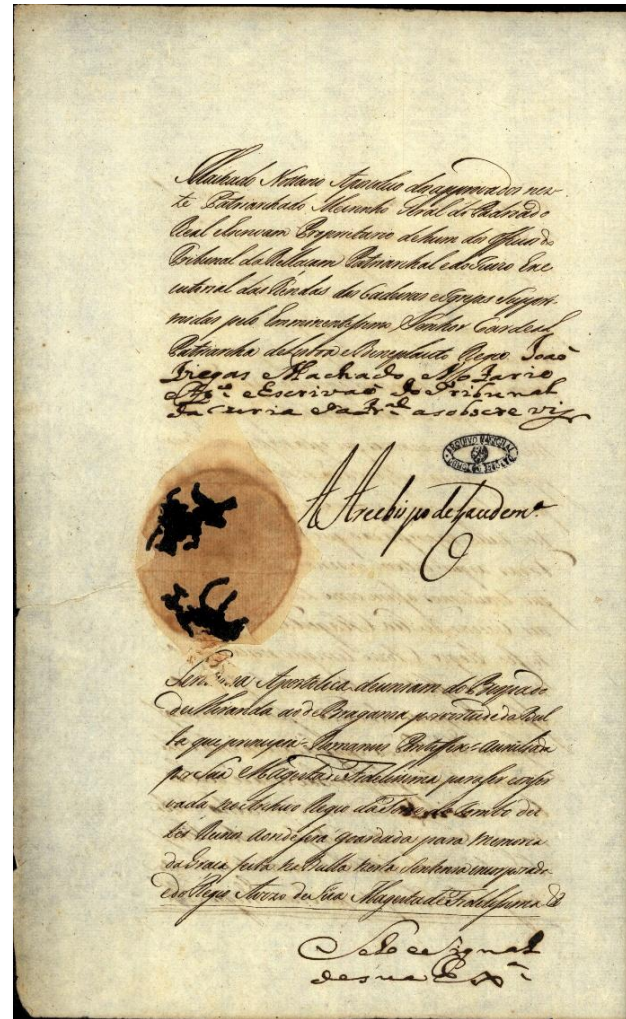 Machado Notario Apostolico dos approvados nes-
te Patriarchado Meirinho Geral do Padroado
Real e Escrivam Proprietario de hum dos Officios do
Tribunal da Rellacam Patriarchal e do Juizo Exe
cutorial das Rendas das Cadeiras e Igrejas Suppri-
midas pelo Eminentissimo Senhor Cardeal
Patriarcha de Lisboa e Beneplacito Regio João
Viegas Machado Notario
App.º e Escrivaõ do Tribunal
da Curia a sobscrevy
ARCHIVO NACIONAL
A Arcebispo de Lacedem.ª
Sentença Apostolica de uniam do Bispado
de Miranda ao de Bragança por virtude da Bul
la que principia = Romanus Pontifex = Auxiliada
por Sua Magestade Fidelissima para ser conser
vada no Archivo Regio da Torre do Tombo des
tes Reinos aonde sera goardada para memoria
da Graça feita na Bulla nesta Sentença incorporada
e do Regio Avizo de Sua Magestade Fidelissima &
Sello e Signal
de sua Ex.ª